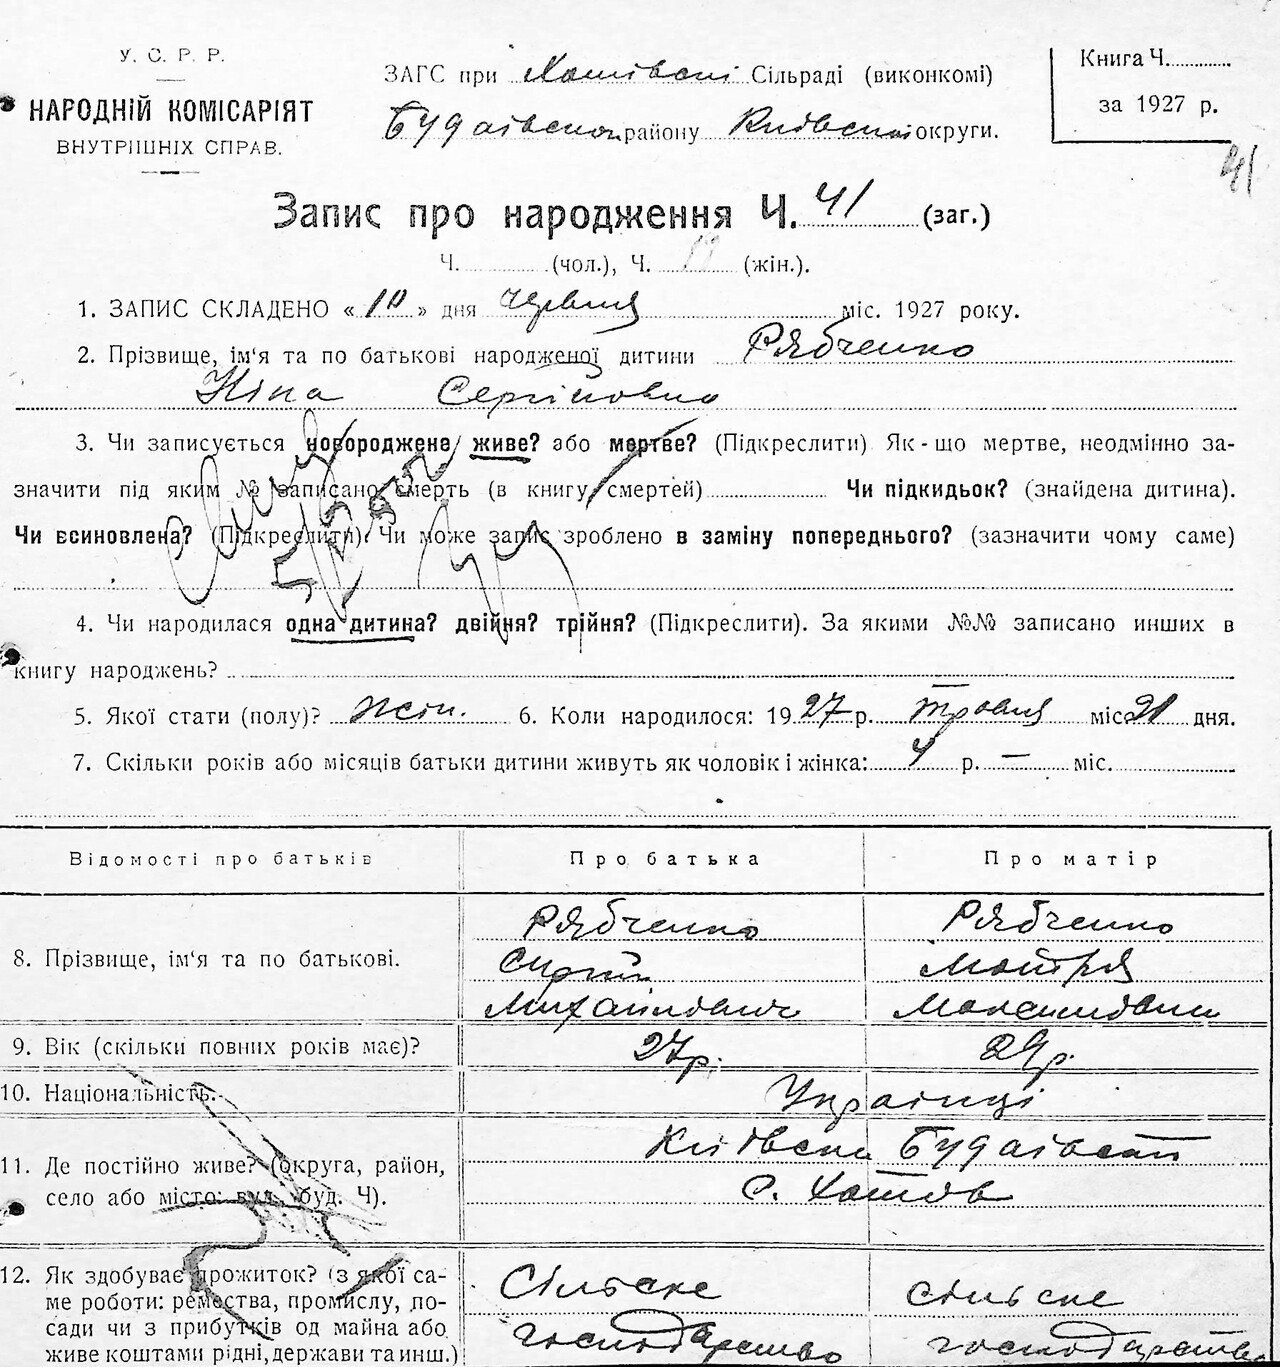 У. С. Р. Р.
НАРОДНІЙ КОМІСАРІЯТ
ВНУТРІШНІХ СПРАВ.
ЗАГС при Хотівські Сільраді (виконкомі)
Будаївском району Київської округи.
Книга Ч.
за 1927 р.
41
Запис про народження Ч. 41 (заг.)
Ч. (чол.), Ч. 19 (жін.).
1. ЗАПИС СКЛАДЕНО «10» дня червня міс. 1927 року.
2. Прізвище, ім'я та по батькові народженої дитини Рябченко
Ніна Сергіївна
3. Чи записується новороджене живе? або мертве? (Підкреслити) Як-що мертве, неодмінно за-
значити під яким № записано смерть (в книгу смертей) Чи підкидьок? (знайдена дитина).
Чи всиновлена? (Підкреслити). Чи може запис зроблено в заміну попереднього? (зазначити чому саме)
4. Чи народилася одна дитина? двійня? трійня? (Підкреслити). За якими №№ записано инших в
книгу народжень?
5. Якої стати (полу)? жін. 6. Коли народилося: 1927 р. травня міс. 21 дня.
7. Скільки років або місяців батьки дитини живуть як чоловік і жінка: 4 р. — міс.
Відомості про батьків Про батька Про матір
8. Прізвище, ім'я та по батькові.
Рябченко Рябченко
Сергій Мотря
Михайлович Максимовна
9. Вік (скільки повних років має)? 27 р. 29 р.
10. Національність. Українці
11. Де постійно живе? (округа, район,
село або місто: вул., буд. Ч).
Київськ Будаївськ
с. Хотів
12. Як здобуває прожиток? (з якої са-
ме роботи: ремества, промислу, по-
сади чи з прибутків од майна або
живе коштами рідні, держави та инш.)
Сільське сільське
господарство господарство